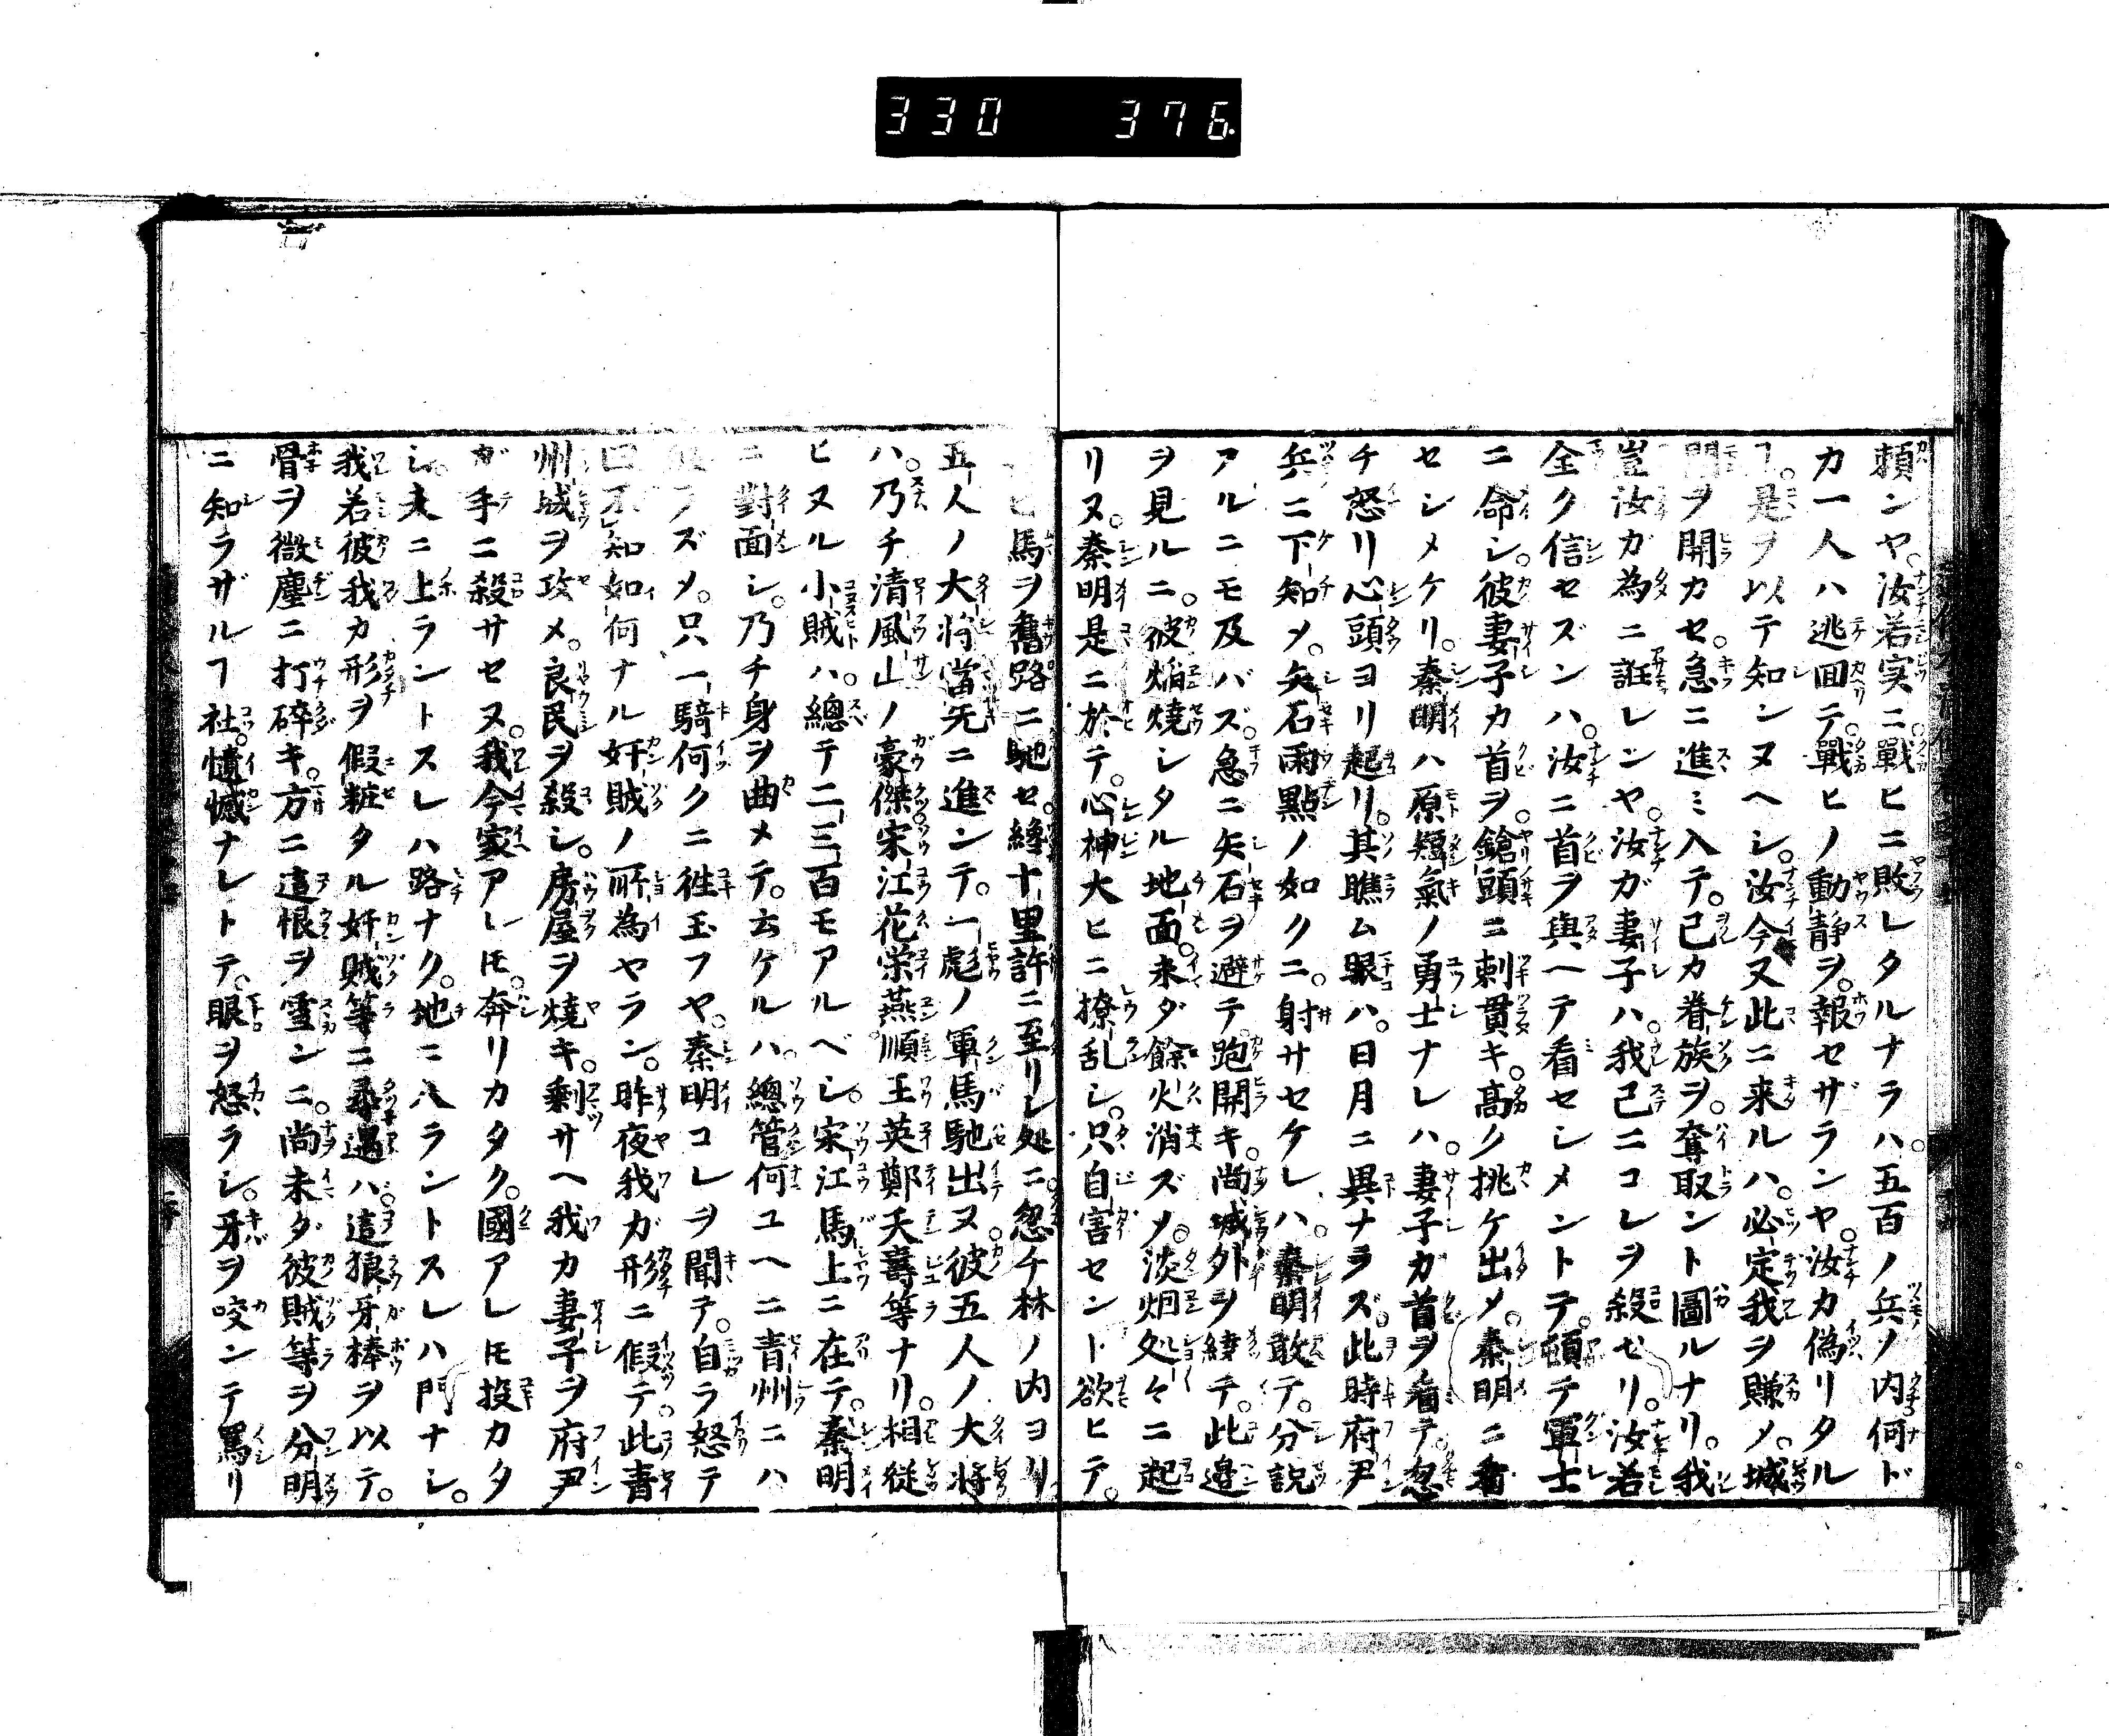 330 376.
頼ンヤ。汝若実ニ。戰ヒニ敗レタルナラハ。五百ノ兵ノ内何ド
カ一人ハ逃回テ。戰ヒノ動靜ヲ。報セザランヤ。汝カ偽リタル
ヿ。是ヲ以テ知ンヌヘシ。汝今又此ニ来ルハ。必定我ヲ賺メ。城
門ヲ開カセ。急ニ進ミ入テ。己カ眷族ヲ。奪取ント圖ルナリ。我
豈汝ガ為ニ誑レンヤ。汝ガ妻子ハ。我已ニコレヲ殺セリ。汝若
全ク信セズンハ。汝ニ首ヲ與ヘテ看セシメントテ。頓テ軍士
ニ命シ。彼妻子カ首ヲ。鎗頭ニ刺貫キ。高ク挑ケ出メ。秦明ニ看
セシメケリ。秦明ハ原短氣ノ勇士ナレハ。妻子ガ首ヲ看テ。忽
チ怒リ心頭ヨリ起リ。其瞧ム眼ハ。日月ニ異ナラズ。此時府尹
兵ニ下知メ。矢石雨點ノ如クニ。射サセケレハ。秦明敢テ。分説
アルニモ及バズ。急ニ矢石ヲ避テ跑開キ。尚城外ヲ繞テ。此邉
ヲ見ルニ。彼焔燒シタル地面。未ダ餘火消ズメ。淡烟処々ニ起
リヌ。秦明是ニ於テ。心神大ヒニ撩乱シ。只自害セント欲ヒテ。
馬ヲ舊路ニ馳セ。纔十里許ニ至リシ処ニ。忽チ林ノ内ヨリ
五人ノ大将當先ニ進ンテ。一彪ノ軍馬馳出ヌ。彼五人ノ大将
ハ。乃チ清風山ノ豪傑。宋江花栄燕順王英鄭天壽等ナリ。相從
ヒヌル小賊ハ。總テ二三百モアルベシ。宋江馬上ニ在テ。秦明
ニ對面シ。乃チ身ヲ曲メテ。云ケルハ。總管何ユヘニ青州ニハ
ラズメ。只一騎何クニ徃玉フヤ。秦明コレヲ聞テ。自ラ怒テ
曰不知如何ナル奸賊ノ所為ヤラン。昨夜我ガ形ニ假テ。此青
州城ヲ攻メ。良民ヲ殺シ。房屋ヲ燒キ。剰サヘ我カ妻子ヲ府尹
ガ手ニ殺サセヌ。我今家アレ𪜈。奔リカタク。國アレ𪜈投カタ
シ。天ニ上ラントスレハ路ナク。地ニ入ラントスレハ門ナシ。
我若彼我カ形ヲ假粧タル奸賊等ニ尋遇ハ。這狼牙棒ヲ以テ。
骨ヲ微塵ニ打碎キ。方ニ這恨ヲ雪ンニ。尚未ダ彼賊等ヲ分明
ニ知ラザルヿ社。憤憾ナレトテ。眼ヲ怒ラシ。牙ヲ咬ンテ罵リ